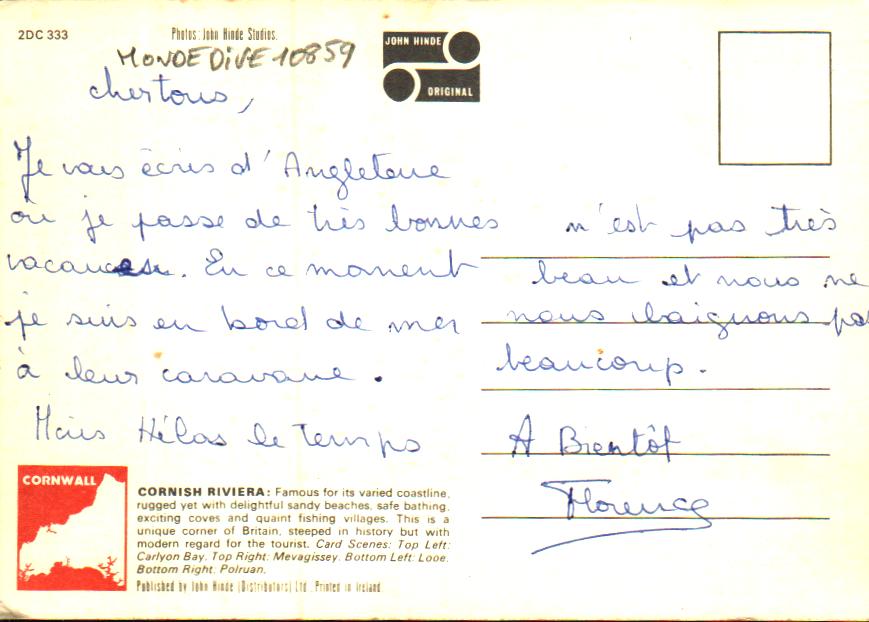 2DC 333
Photos: John Hinde Studios.
MONDEDIVE 10859
JOHN HINDE
ORIGINAL
cher tous,
Je vous écris d'Angleterre
où je passe de très bonnes
vacances. En ce moment
je suis en bord de mer
à leur caravane.
Mais Hélas le Temps
n'est pas très
beau et nous ne
nous baignons pas
beaucoup.
A Bientôt
Florence
CORNWALL
CORNISH RIVIERA: Famous for its varied coastline,
rugged yet with delightful sandy beaches, safe bathing,
exciting coves and quaint fishing villages. This is a
unique corner of Britain, steeped in history but with
modern regard for the tourist. Card Scenes: Top Left:
Carlyon Bay. Top Right: Mevagissey. Bottom Left: Looe.
Bottom Right: Polruan.
Published by John Hinde (Distributors) Ltd. Printed in Ireland